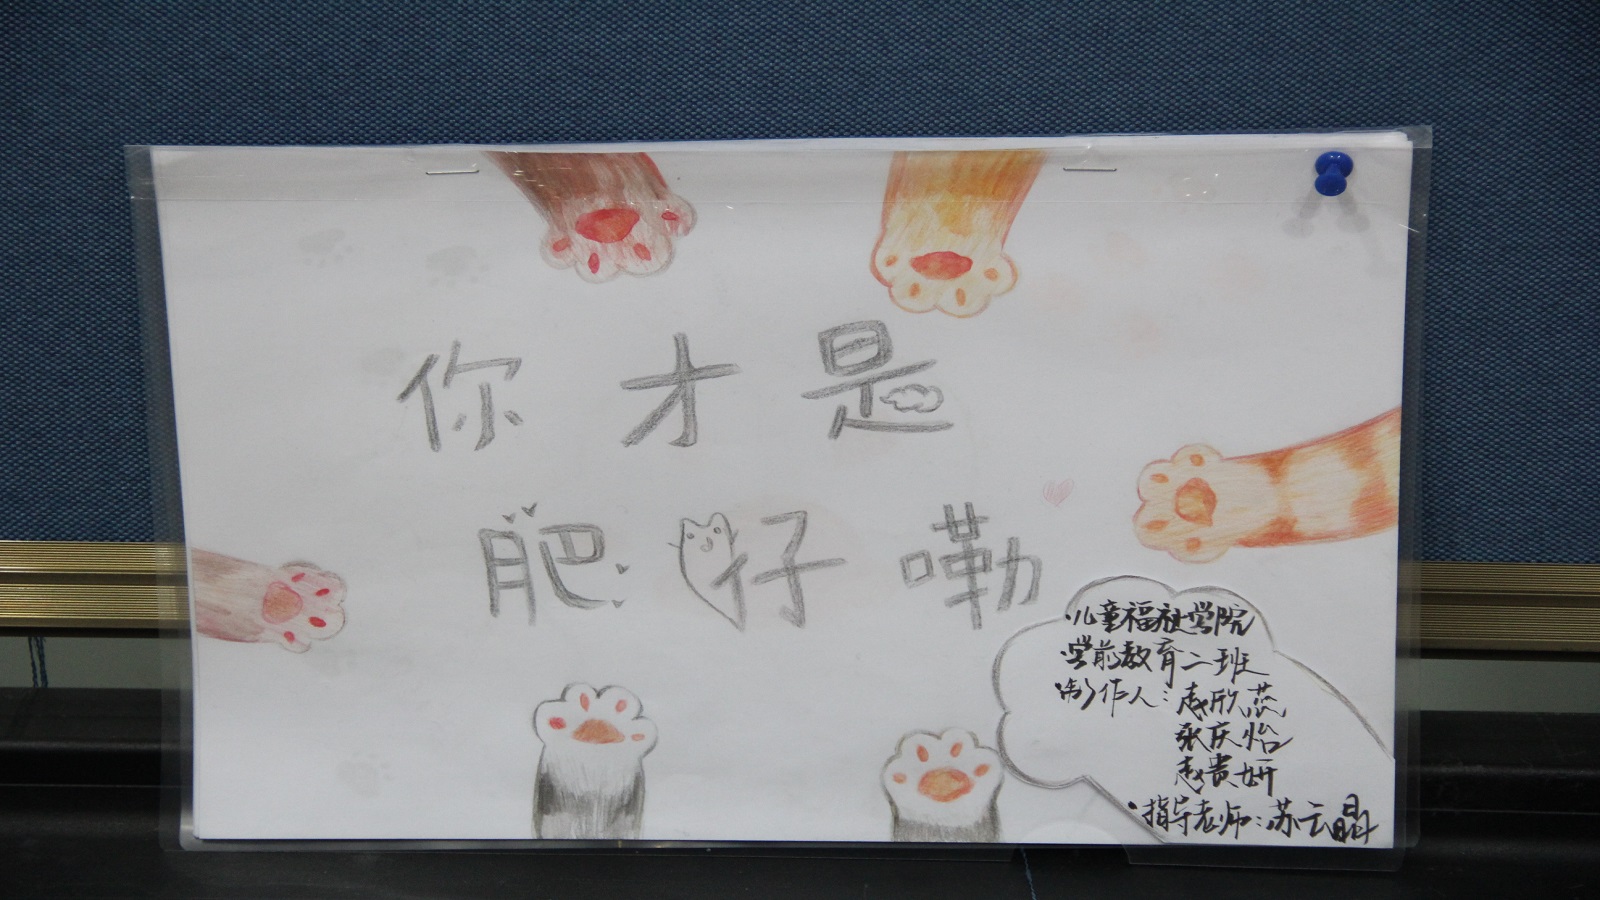 你才是
肥仔嘞
儿童福祉学院
学前教育二班
制作人：赵欣蕊
张庆怡
赵贵妍
指导老师：苏云晶